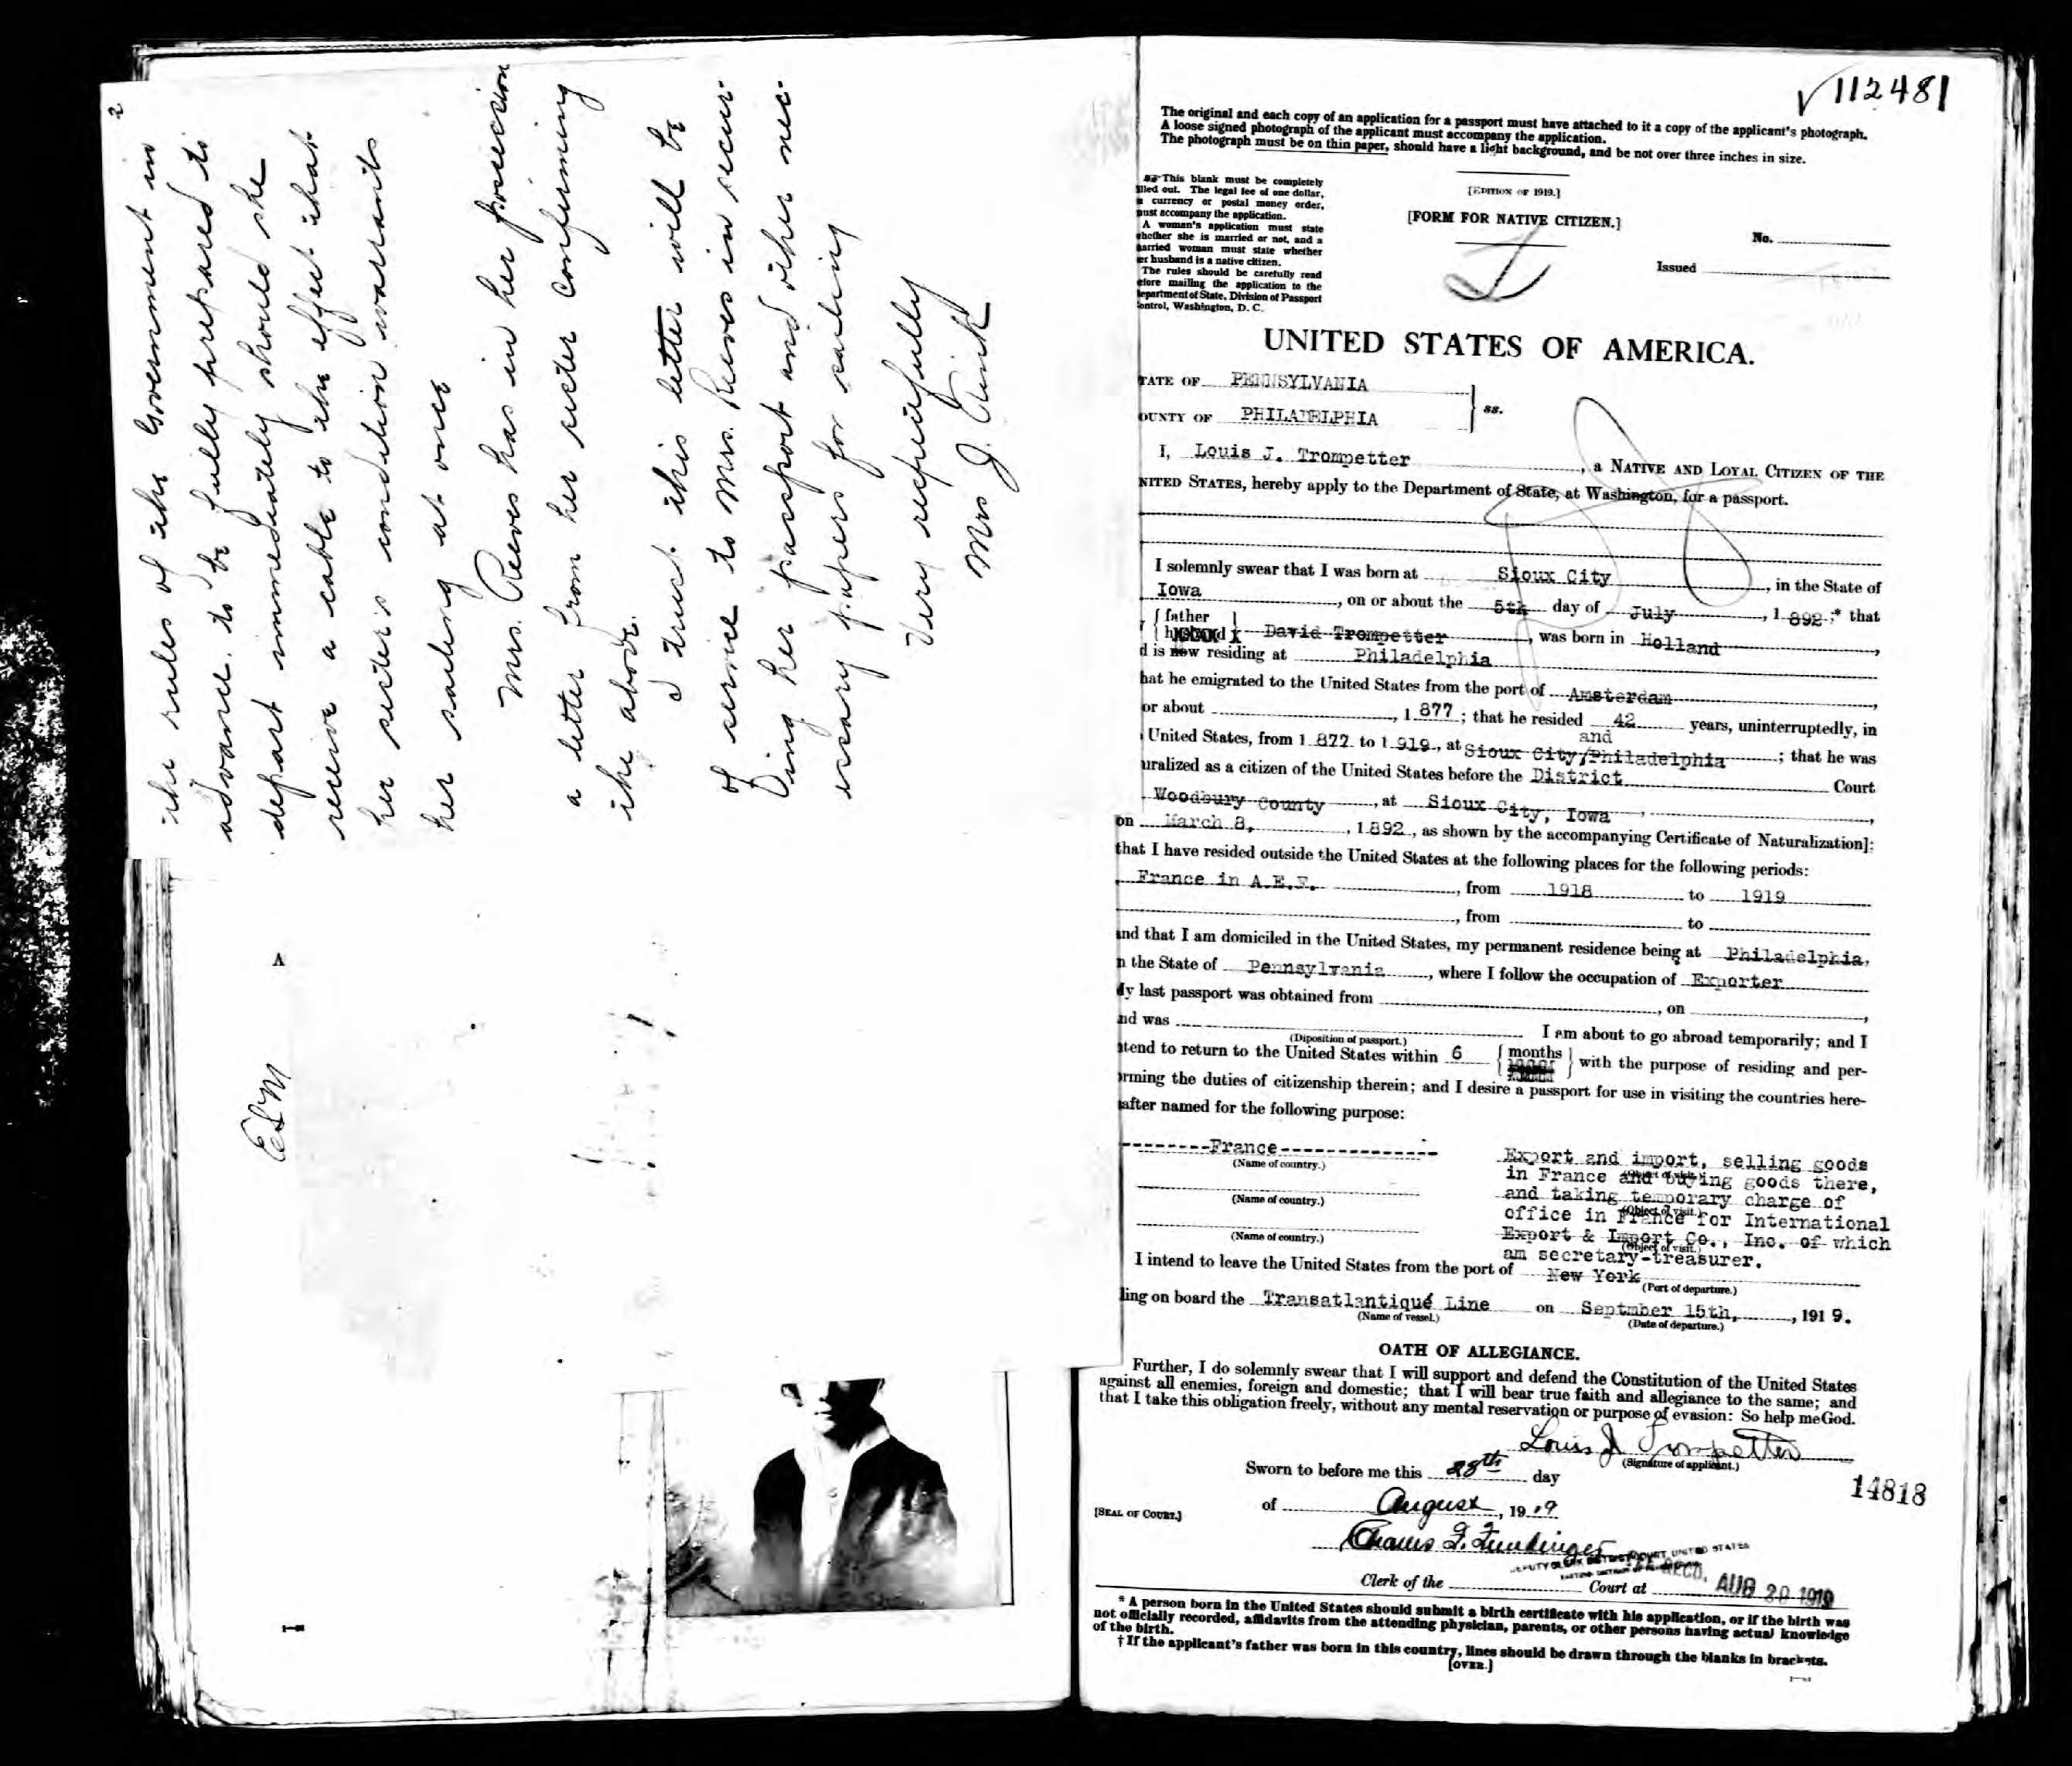 2
the rules of the Government in
advance, to be fully prepared to
depart immediately should she
receive a cable to the effect that
her sister's condition warrants
her sailing at once
Mrs. Reeves has in her possession
a letter from her sister confirming
the above.
I trust this letter will be
of service to Mrs. Reeves in secur-
ing her passport and other nec-
essary papers for sailing
Very respectfully
Mrs J.
A
ELM
112481
The original and each copy of an application for a passport must have attached to it a copy of the applicant's photograph.
A loose signed photograph of the applicant must accompany the application.
The photograph must be on thin paper, should have a light background, and be not over three inches in size.
This blank must be completely
illed out. The legal fee of one dollar,
currency or postal money order,
ust accompany the application.
A woman's application must state
hether she is married or not, and a
arried woman must state whether
er husband is a native citizen.
The rules should be carefully read
efore mailing the application to the
epartment of State, Division of Passport
ontrol, Washington, D. C.
[EDITION OF 1919.]
[FORM FOR NATIVE CITIZEN.]
No.
Issued
UNITED STATES OF AMERICA.
TATE OF PENNSYLVANIA
OUNTY OF PHILADELPHIA
ss.
I, Louis J. Trompetter, a NATIVE AND LOYAL CITIZEN OF THE
NITED STATES, hereby apply to the Department of State, at Washington, for a passport.
I solemnly swear that I was born at Sioux City, in the State of
Iowa, on or about the 5th day of July, 1892;* that
father
husband David Trompetter, was born in Holland,
d is now residing at Philadelphia
hat he emigrated to the United States from the port of Amsterdam,
or about, 1877; that he resided 42 years, uninterruptedly, in
United States, from 1877 to 1919, at Sioux City/and Philadelphia; that he was
uralized as a citizen of the United States before the District Court
Woodbury County, at Sioux City, Iowa,
on March 8, 1892, as shown by the accompanying Certificate of Naturalization];
that I have resided outside the United States at the following places for the following periods:
France in A.E.F., from 1918 to 1919
, from to
nd that I am domiciled in the United States, my permanent residence being at Philadelphia,
n the State of Pennsylvania, where I follow the occupation of Exporter
My last passport was obtained from, on,
nd was I am about to go abroad temporarily; and I
(Diposition of passport.)
ntend to return to the United States within 6 {months} with the purpose of residing and per-
orming the duties of citizenship therein; and I desire a passport for use in visiting the countries here-
after named for the following purpose:
France
(Name of country.)
(Name of country.)
(Name of country.)
Export and import, selling goods
(Object of visit.)
in France and buying goods there,
and taking temporary charge of
(Object of visit.)
office in France for International
Export & Import Co., Inc. of which
(Object of visit.)
am secretary-treasurer.
I intend to leave the United States from the port of New York
(Port of departure.)
ling on board the Transatlantiqué Line on Septmber 15th, 1919.
(Name of vessel.) (Date of departure.)
OATH OF ALLEGIANCE.
Further, I do solemnly swear that I will support and defend the Constitution of the United States
against all enemies, foreign and domestic; that I will bear true faith and allegiance to the same; and
that I take this obligation freely, without any mental reservation or purpose of evasion: So help me God.
Louis J Trompetter
(Signature of applicant.)
Sworn to before me this 28th day
14818
[SEAL OF COURT.]
of August, 1919
Charles
DEPUTY CLERK DISTRICT COURT, UNITED STATES
RECD. AUG 29 1919
Clerk of the Court at
* A person born in the United States should submit a birth certificate with his application, or if the birth was
not officially recorded, affidavits from the attending physician, parents, or other persons having actual knowledge
of the birth.
† If the applicant's father was born in this country, lines should be drawn through the blanks in brackets.
[OVER.]